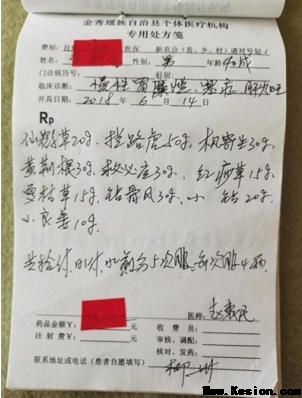 金秀瑶族自治县个体医疗机构
专用处方笺
费别: 医保 新农合(县、乡、村)请对号划√
姓名: 性别: 男 年龄 成
门诊病历号: 科别:
临床诊断: 慢性胃
开具日期: 2018 年 6 月 14 日
Rp
仙鹤草20g. 拦路虎50g. 枫寄生30g.
黄荆根30g. 救必应30g. 红 草15g.
草15g. 钻骨风30g. 小钻20g.
小良姜10g.
共拾付. 日1付. 水煎分 次服. 每次服4两
医师:
药品金额¥: 元 收费员:
注射费¥: 元 审核、调配:
核对、发药:
联系地址或电话(患者自愿填写) 柳州
www.Kesion.com